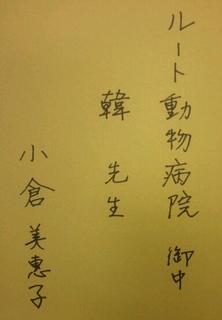 ルート動物病院 御中
韓 先生
小倉 美惠子